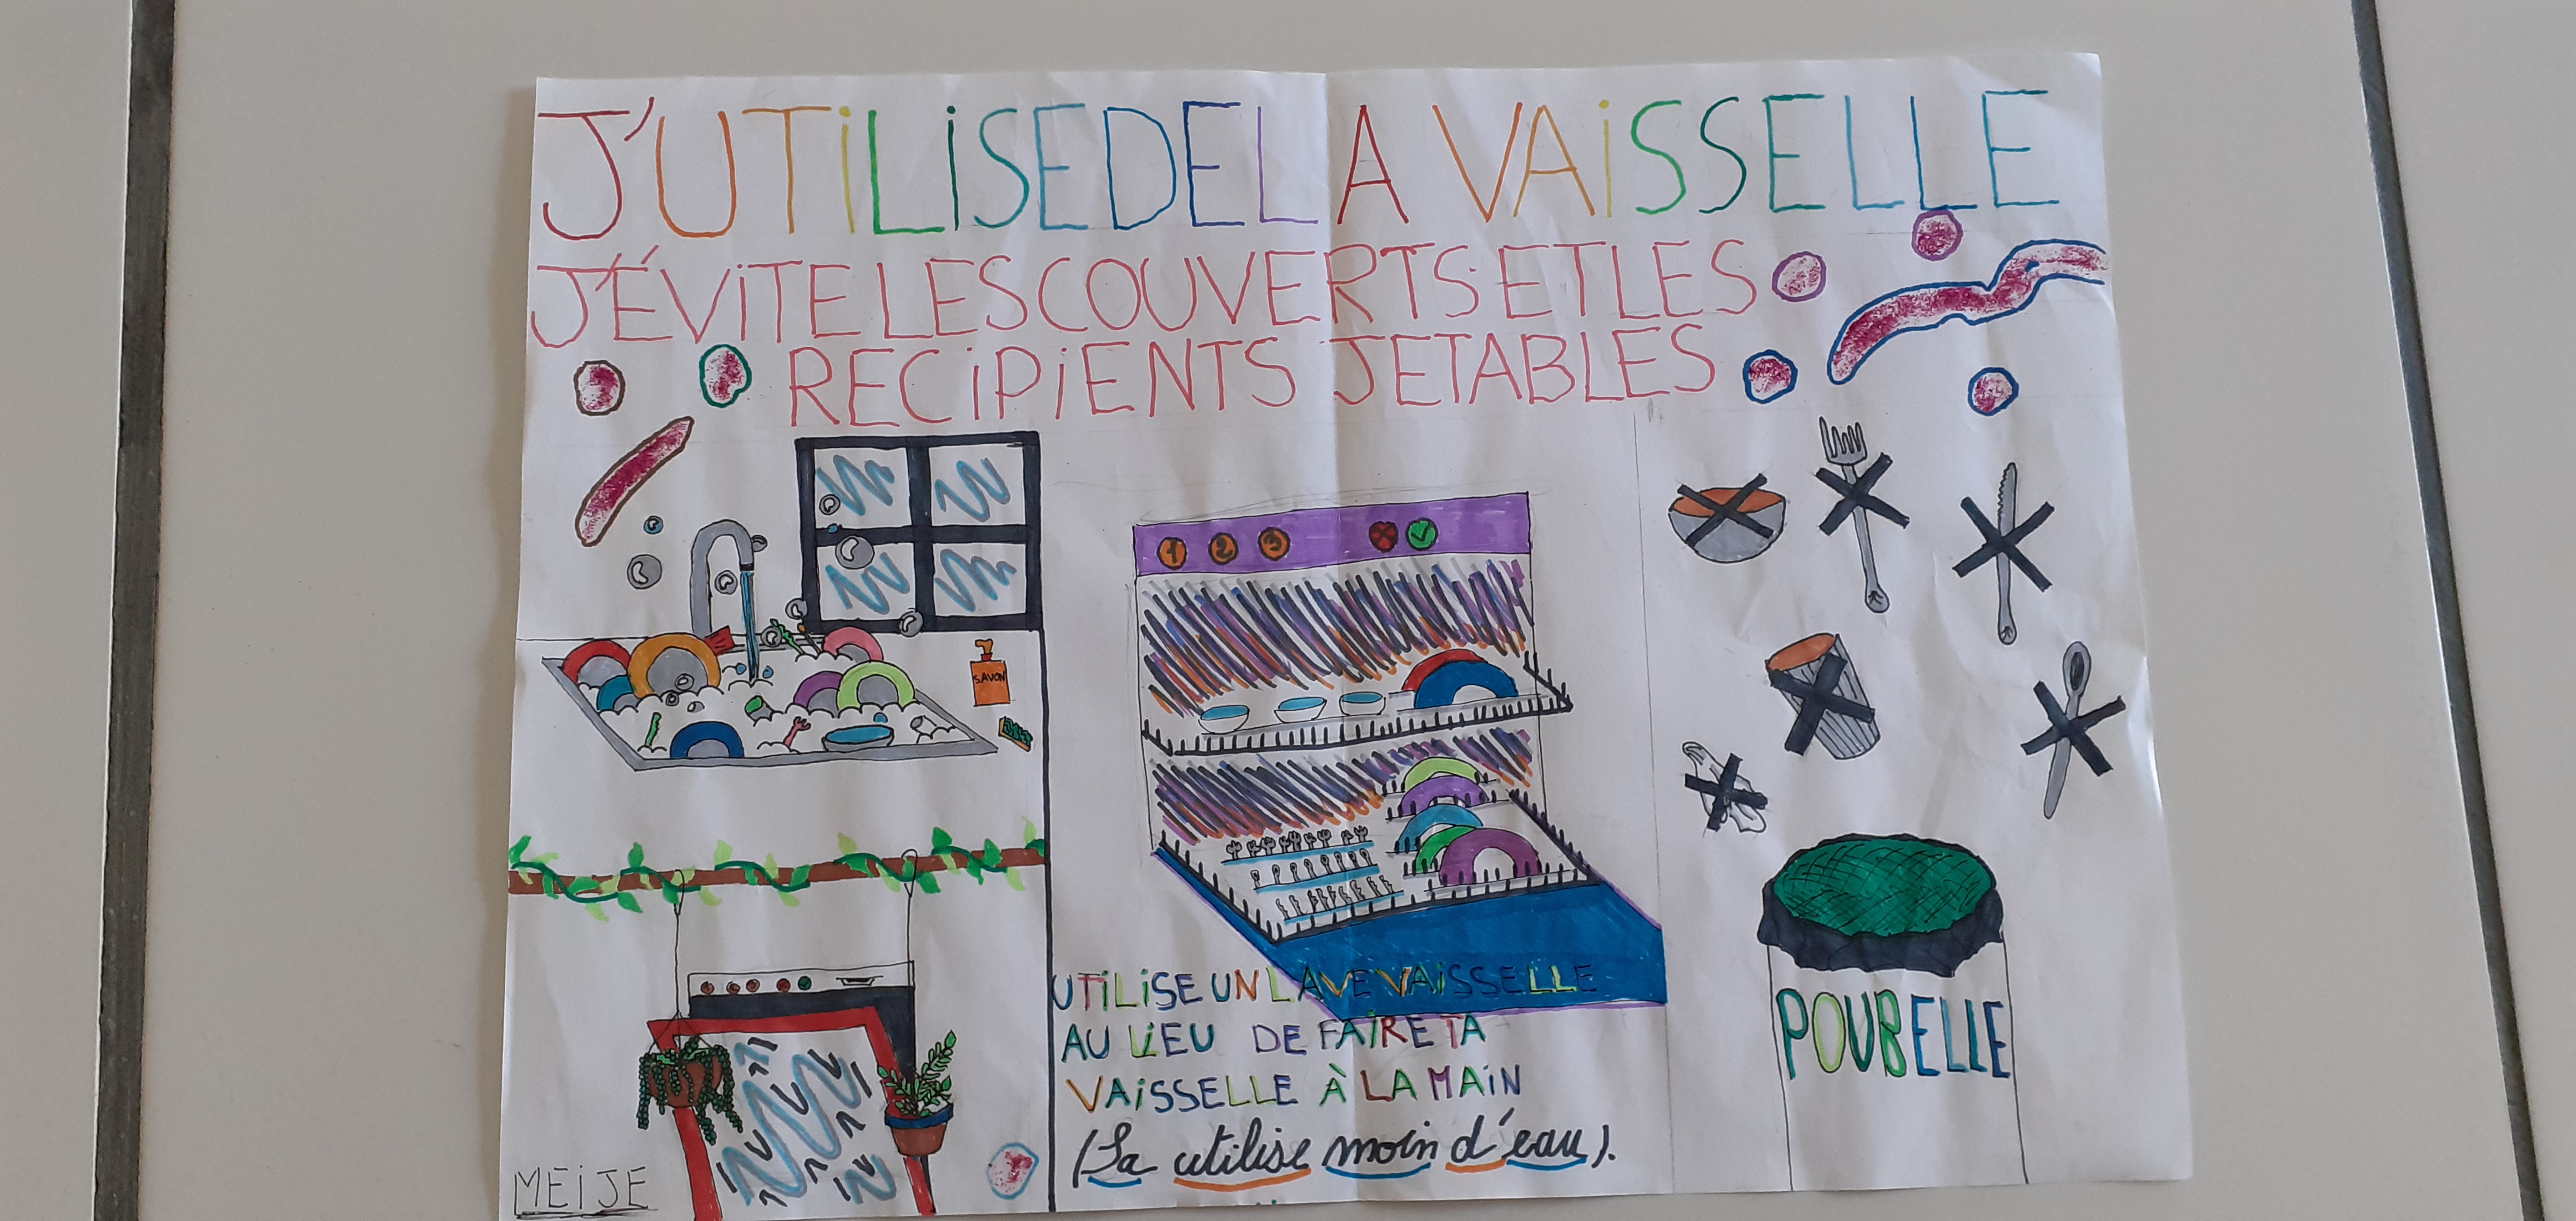 J'UTiLiSE DE LA VAiSSELLE
J'ÉViTE LES COUVERTS ET LES
RECiPiENTS JETABLES
1 2 3
SAVON
UTiLiSE UN LAVE VAiSSELLE
AU LiEU DE FAiRE TA
VAiSSELLE À LA MAiN
(Sa utilise moin d'eau).
POUBELLE
MEiJE